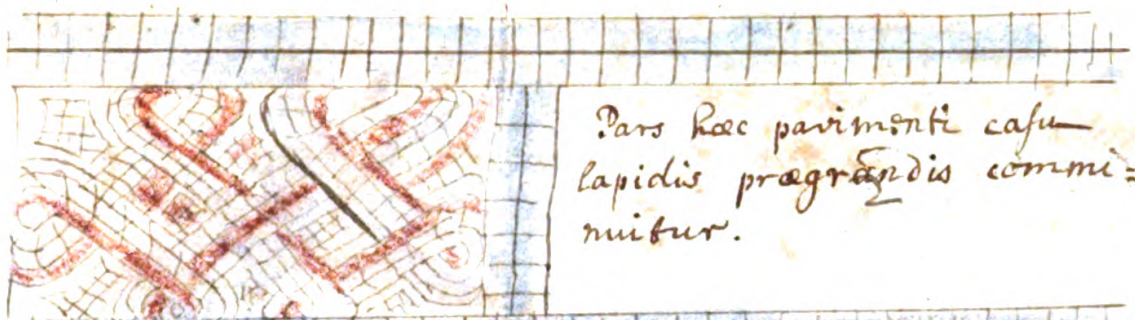 Pars hæc pavimenti casu
lapidis prægrandis commi=
nuitur.